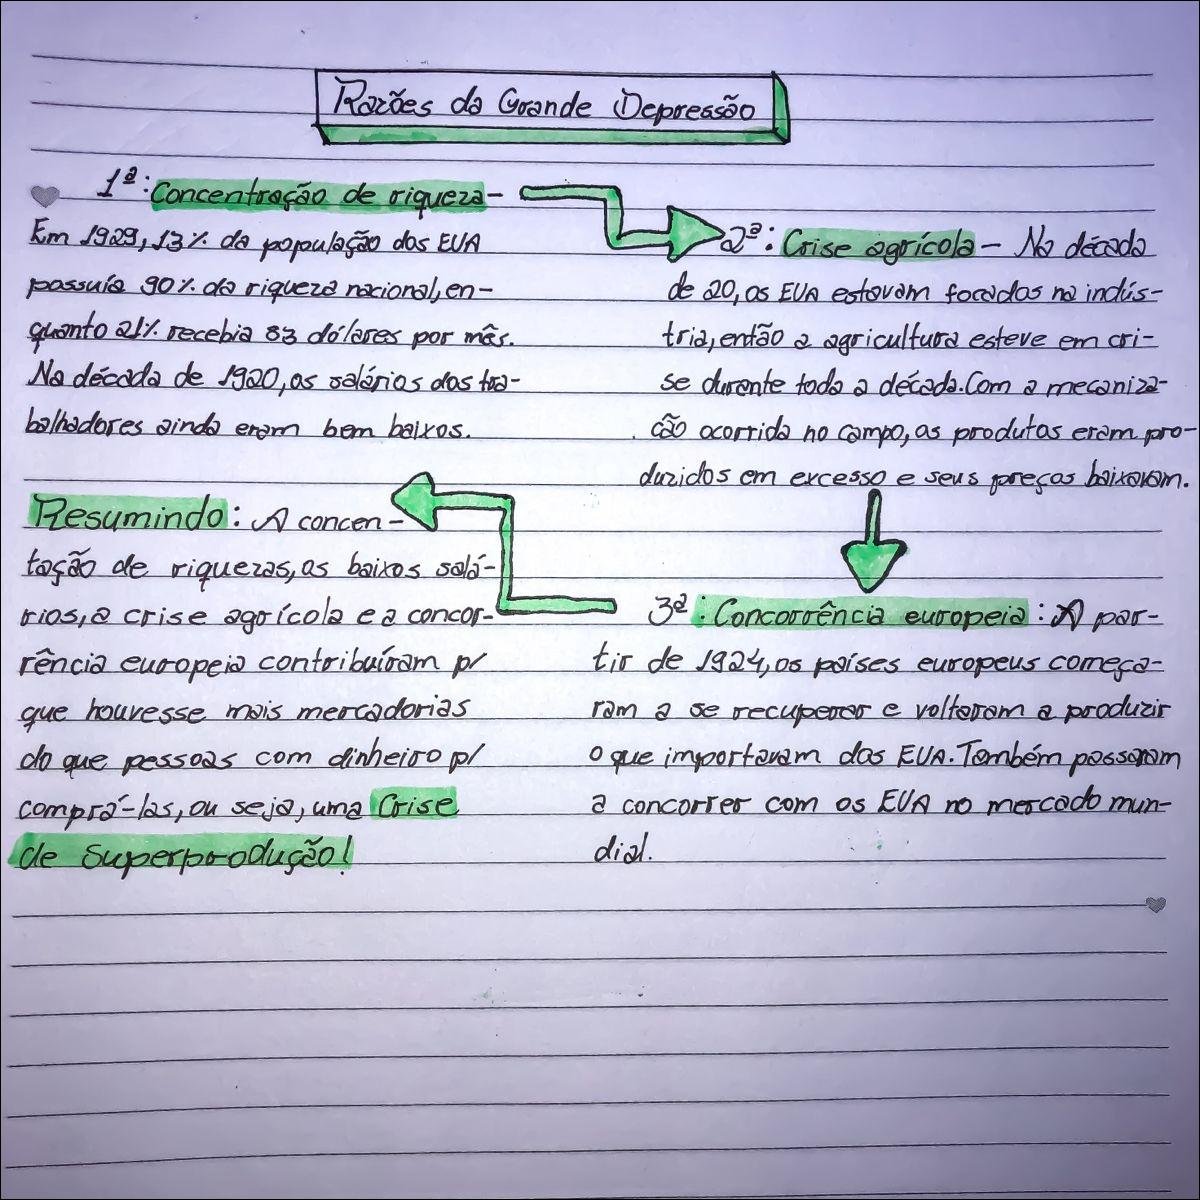 Razões da Grande Depressão
1ª: Concentração de riqueza-
Em 1929, 13% da população dos EUA
possuía 90% da riqueza nacional, en-
quanto 21% recebia 83 dólares por mês.
Na década de 1920, os salários dos tra-
balhadores ainda eram bem baixos.
2ª: Crise agrícola - Na década
de 20, os EUA estavam focados na indús-
tria, então a agricultura esteve em cri-
se durante toda a década. Com a mecaniza-
ção ocorrida no campo, os produtos eram pro-
duzidos em excesso e seus preços baixavam.
3ª: Concorrência europeia: A par-
tir de 1924, os países europeus começa-
ram a se recuperar e voltaram a produzir
o que importavam dos EUA. Também passaram
a concorrer com os EUA no mercado mun-
dial.
Resumindo: A concen-
tação de riquezas, os baixos salá-
rios, a crise agrícola e a concor-
rência europeia contribuíram p/
que houvesse mais mercadorias
do que pessoas com dinheiro p/
comprá-las, ou seja, uma Crise
de Superprodução!